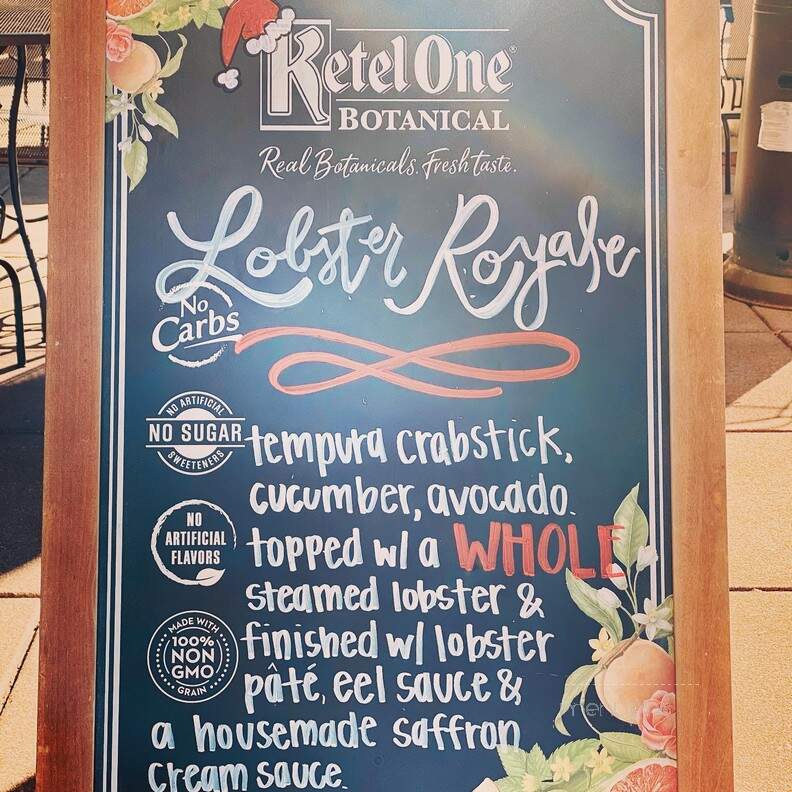 Ketel One
BOTANICAL
Real Botanicals. Fresh taste.
Lobster Royale
No
Carbs
NO ARTIFICIAL
NO SUGAR
SWEETENERS
tempura crabstick,
cucumber, avocado.
NO
ARTIFICIAL
FLAVORS
topped w/ a WHOLE
steamed lobster &
MADE WITH
100%
NON
GMO
GRAIN
finished w/ lobster
pâté, eel sauce &
a housemade saffron
cream sauce.